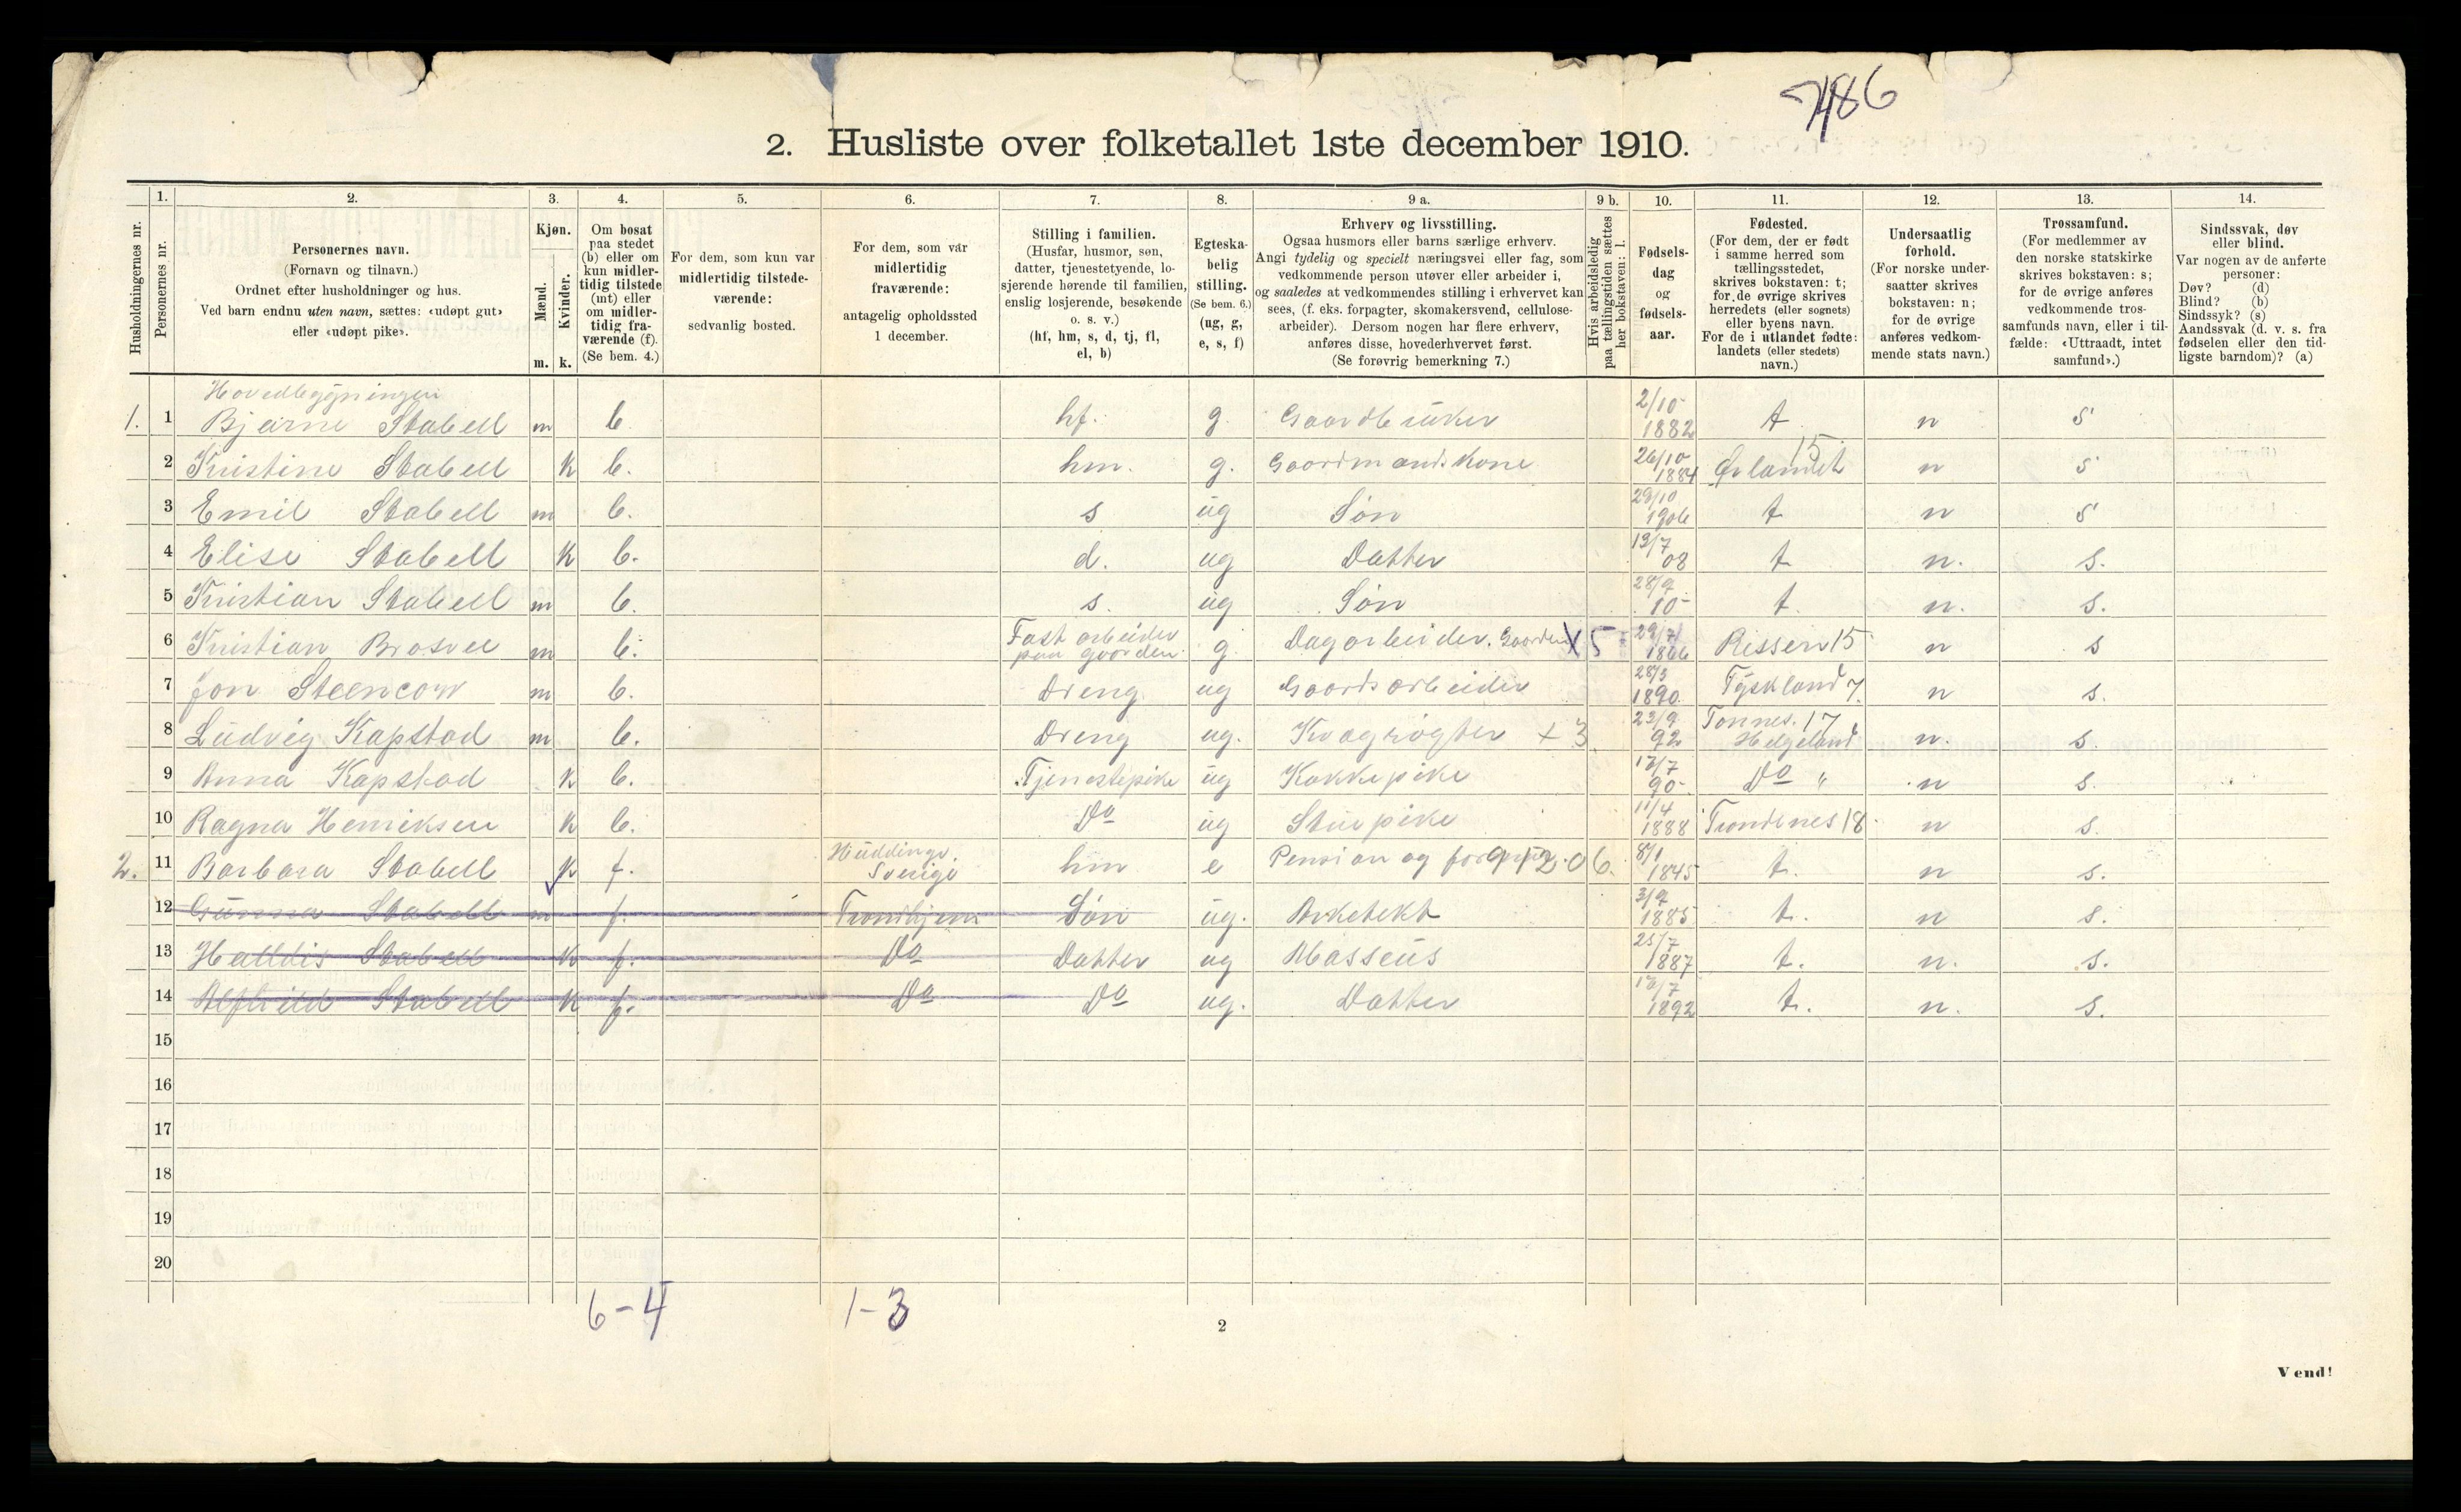 7486
2. Husliste over folketallet 1ste december 1910.
Husholdningernes nr.
1.
Personernes nr.
2.
Personernes navn.
(Fornavn og tilnavn.)
Ordnet efter husholdninger og hus.
Ved barn endnu uten navn, sættes: «udøpt gut»
eller «udøpt pike».
3.
Kjøn.
Mænd.
Kvinder.
m. k.
4.
Om bosat
paa stedet
(b) eller om
kun midler-
tidig tilstede
(mt) eller
om midler-
tidig fra-
værende (f).
(Se bem. 4.)
5.
For dem, som kun var
midlertidig tilstede-
værende:
sedvanlig bosted.
6.
For dem, som vår
midlertidig
fraværende:
antagelig opholdssted
1 december.
7.
Stilling i familien.
(Husfar, husmor, søn,
datter, tjenestetyende, lo-
sjerende hørende til familien,
enslig losjerende, besøkende
o. s. v.)
(hf, hm, s, d, tj, fl,
el, b)
8.
Egteska-
belig
stilling.
(Se bem. 6.)
(ug, g,
e, s, f)
9 a.
Erhverv og livsstilling.
Ogsaa husmors eller barns særlige erhverv.
Angi tydelig og specielt næringsvei eller fag, som
vedkommende person utøver eller arbeider i,
og saaledes at vedkommendes stilling i erhvervet kan
sees, (f. eks. forpagter, skomakersvend, cellulose-
arbeider). Dersom nogen har flere erhverv,
anføres disse, hovederhvervet først.
(Se forøvrig bemerkning 7.)
9 b.
Hvis arbeidsledig
paa tællingstiden sættes
her bokstaven: l.
10.
Fødsels-
dag
og
fødsels-
aar.
11.
Fødested.
(For dem, der er født
i samme herred som
tællingsstedet,
skrives bokstaven: t;
for de øvrige skrives
herredets (eller sognets)
eller byens navn.
For de i utlandet fødte:
landets (eller stedets)
navn.)
12.
Undersaatlig
forhold.
(For norske under-
saatter skrives
bokstaven: n;
for de øvrige
anføres vedkom-
mende stats navn.)
13.
Trossamfund.
(For medlemmer av
den norske statskirke
skrives bokstaven: s;
for de øvrige anføres
vedkommende tros-
samfunds navn, eller i til-
fælde: «Uttraadt, intet
samfund».)
14.
Sindssvak, døv
eller blind.
Var nogen av de anførte
personer:
Døv? (d)
Blind? (b)
Sindssyk? (s)
Aandssvak (d. v. s. fra
fødselen eller den tid-
ligste barndom)? (a)
Hovedbygningen
1. 1 Bjarne Stabell m b. hf. g. Gaardbruker 2/10 1882 t n s
2 Kristine Stabell k b. hm. g. Gaardmandskone 26/10 1884 Ørlandet 15 n s
3 Emil Stabell m b. s ug Søn 29/10 1906 t n s
4 Elise Stabell k b. d. ug Datter 19/7 08 t n. s.
5 Kristian Stabell m b. s. ug Søn 28/9 10 t. n. s.
6 Kristian m b. Fast arbeider paa gaarden g. Dagarbeider. Gaarden X 5 29/7 Rissen 15 n s
7 Jon m b. Dreng ug Gaardsarbeider 28/3 1890. Tyskland 7. n s.
8 Ludvig Kapstad m b. Dreng ug. Kvægrøgter + 3. 23/9 92 Tonnes. 17 Helgeland n. s.
9 Anna Kapstad k b. Tjenestepike ug Kokkepike 17/7 90 Do " n s.
10 Ragna Henriksen k b. Do ug Stuepike 11/4 1888 Trondenes 18 n s.
2. 11 Barbara Stabell k f. Huddinge. Sverige hm e Pension og 912.06. 8/1 1845 t. n s.
12 Gunnar Stabell m f. Trondhjem Søn ug. Arketekt 3/9 1885 t. n s.
13 Halldis Stabell k f. Do Datter ug Masseus 25/7 1887 t. n. s.
14 Alfhild Stabell k f. Do Do ug. Datter 17/7 1892 t. n. s.
15
16
17
18
19
20
6-4
1-3
2
Vend!